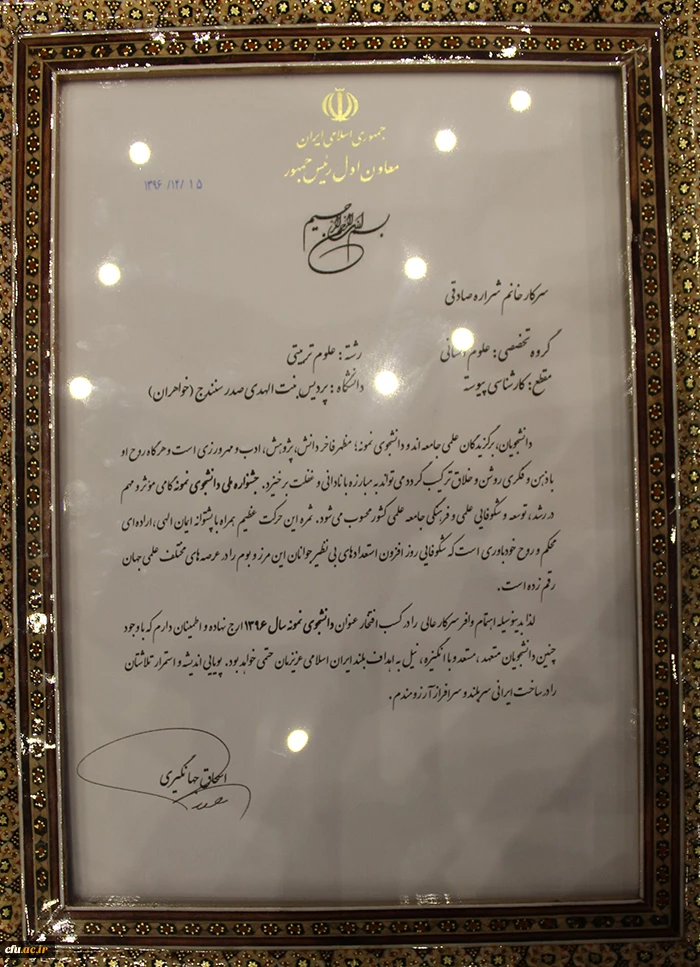 جمهوری اسلامی ایران
معاون اول رئیس جمهور
۱۳۹۶/۱۲/۱۵
بسم الله الرحمن الرحیم
سرکار خانم شراره صادقی
گروه تخصصی: علوم انسانی رشته: علوم تربیتی
مقطع: کارشناسی پیوسته دانشگاه: پردیس بنت الهدی صدر سنندج (خواهران)
دانشجویان، برگزیدگان علمی جامعه اند و دانشجوی نمونه؛ مظهر فاخر دانش، پژوهش، ادب و مهرورزی است و هرگاه روح او
با ذهن و فکری روشن و خلاق ترکیب گردد می‌تواند به مبارزه با نادانی و غفلت برخیزد. جشنواره ملی دانشجوی نمونه گامی مؤثر و مهم
در رشد، توسعه و شکوفایی علمی و فرهنگی جامعه علمی کشور محسوب می‌شود. ثمره این حرکت عظیم همراه با پشتوانه ایمان الهی، اراده‌ای
محکم و روح خودباوری است که شکوفایی روز افزون استعدادهای بی نظیر جوانان این مرز و بوم را در عرصه‌های مختلف علمی جهان
رقم زده است.
لذا بدینوسیله اهتمام وافر سرکار عالی را در کسب افتخار عنوان دانشجوی نمونه سال ۱۳۹۶ ارج نهاده و اطمینان دارم که با وجود
چنین دانشجویان متعهد، مستعد و با انگیزه، نیل به اهداف بلند ایران اسلامی عزیزمان حتمی خواهد بود. پویایی اندیشه و استمرار تلاشتان
را در ساخت ایرانی سربلند و سرافراز آرزومندم.
اسحاق جهانگیری
cfu.ac.ir